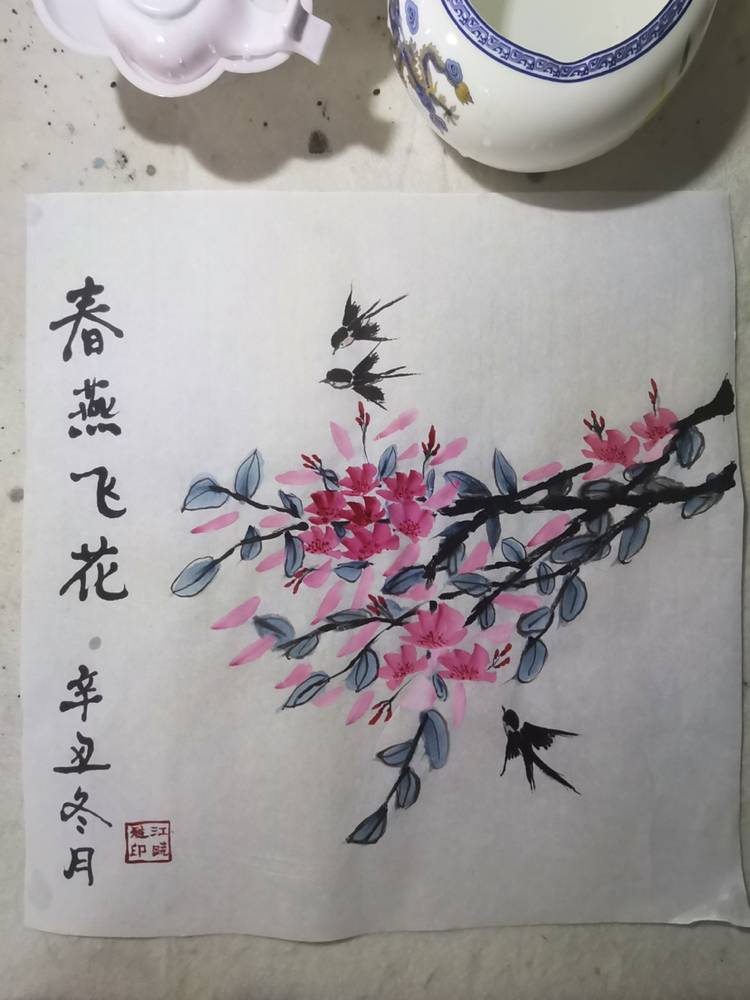 春燕飞花
辛丑冬月
江晓
印